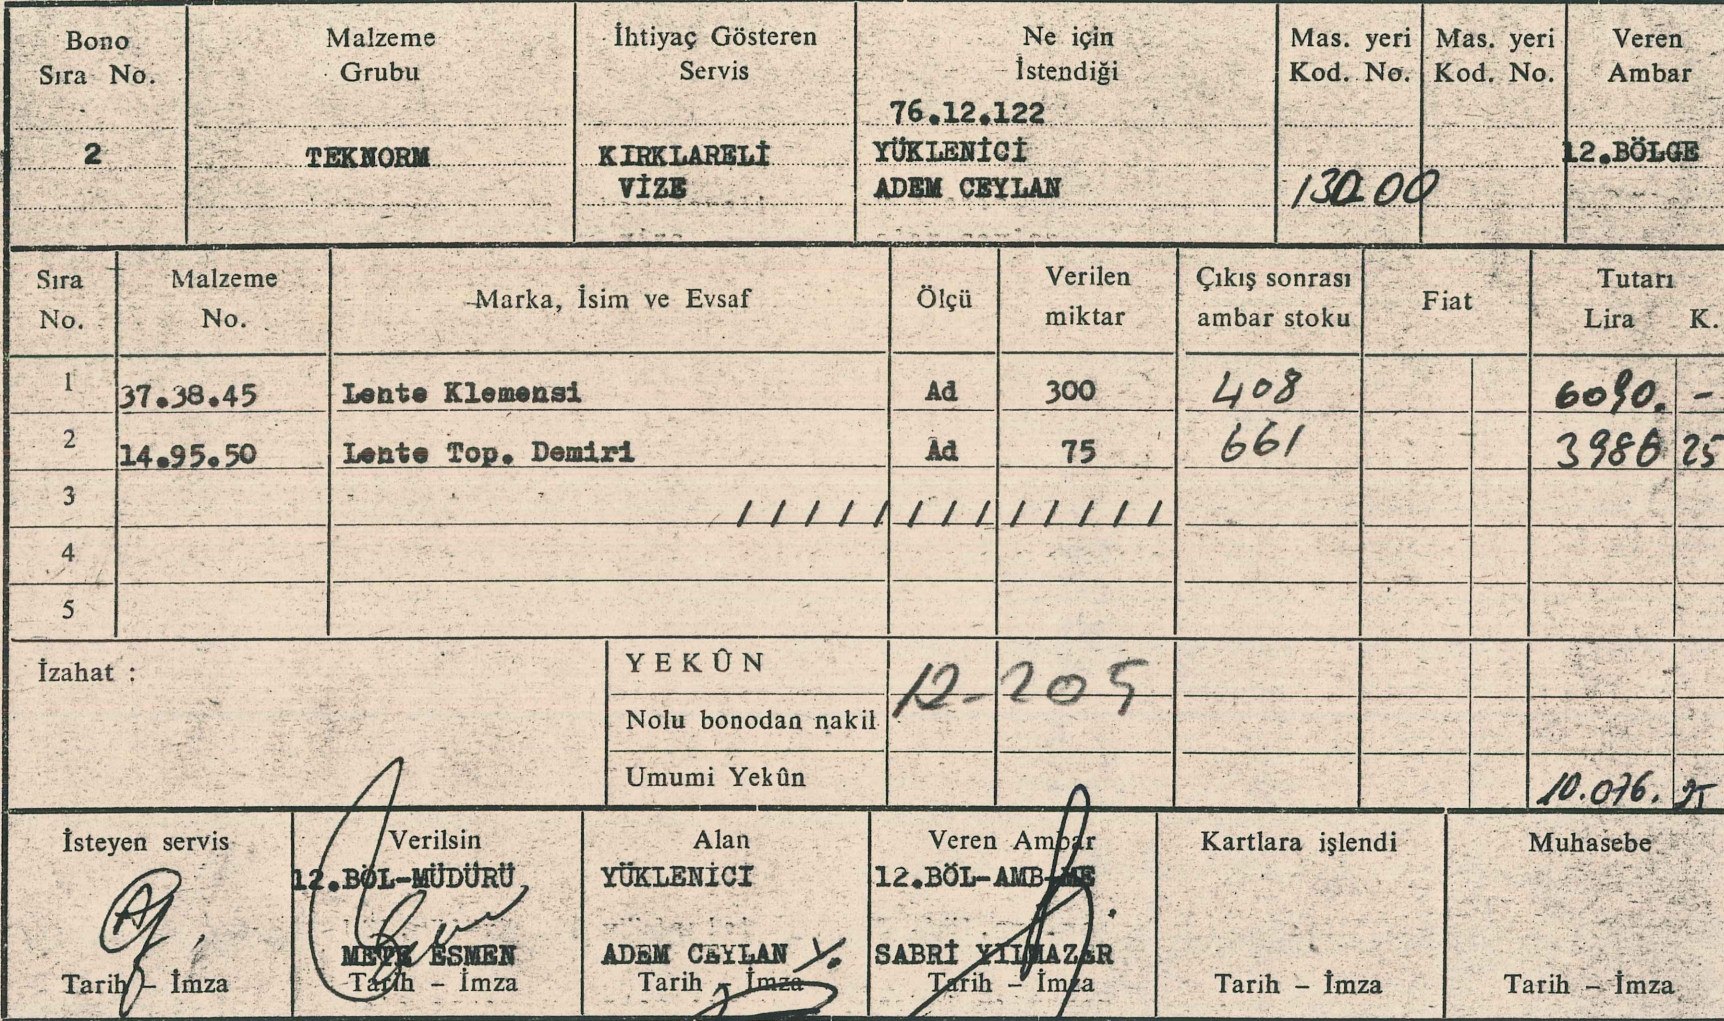 Bono Sıra No.
Malzeme Grubu
İhtiyaç Gösteren Servis
Ne için İstendiği
Mas. yeri Kod. No.
Mas. yeri Kod. No.
Veren Ambar
76.12.122
2 TEKNORM KIRKLARELİ YÜKLENİCİ 12.BÖLGE
VİZE ADEM CEYLAN 130.00
Sıra No.
Malzeme No.
Marka, İsim ve Evsaf
Ölçü
Verilen miktar
Çıkış sonrası ambar stoku
Fiat
Tutarı
Lira K.
1 37.38.45 Lente Klemensi Ad 300 408 6090. -
2 14.95.50 Lente Top. Demiri Ad 75 661 3986 25
3 / / / / / / / / / / / / /
4
5
İzahat :
YEKÛN
12-205
Nolu bonodan nakil
Umumi Yekûn 10.076. 25
İsteyen servis Verilsin Alan Veren Ambar Kartlara işlendi Muhasebe
12.BÖL-MÜDÜRÜ YÜKLENİCİ 12.BÖL-AMB-ME
METE ESMEN ADEM CEYLAN SABRİ YILMAZER
Tarih – İmza Tarih – İmza Tarih – İmza Tarih – İmza Tarih – İmza Tarih – İmza